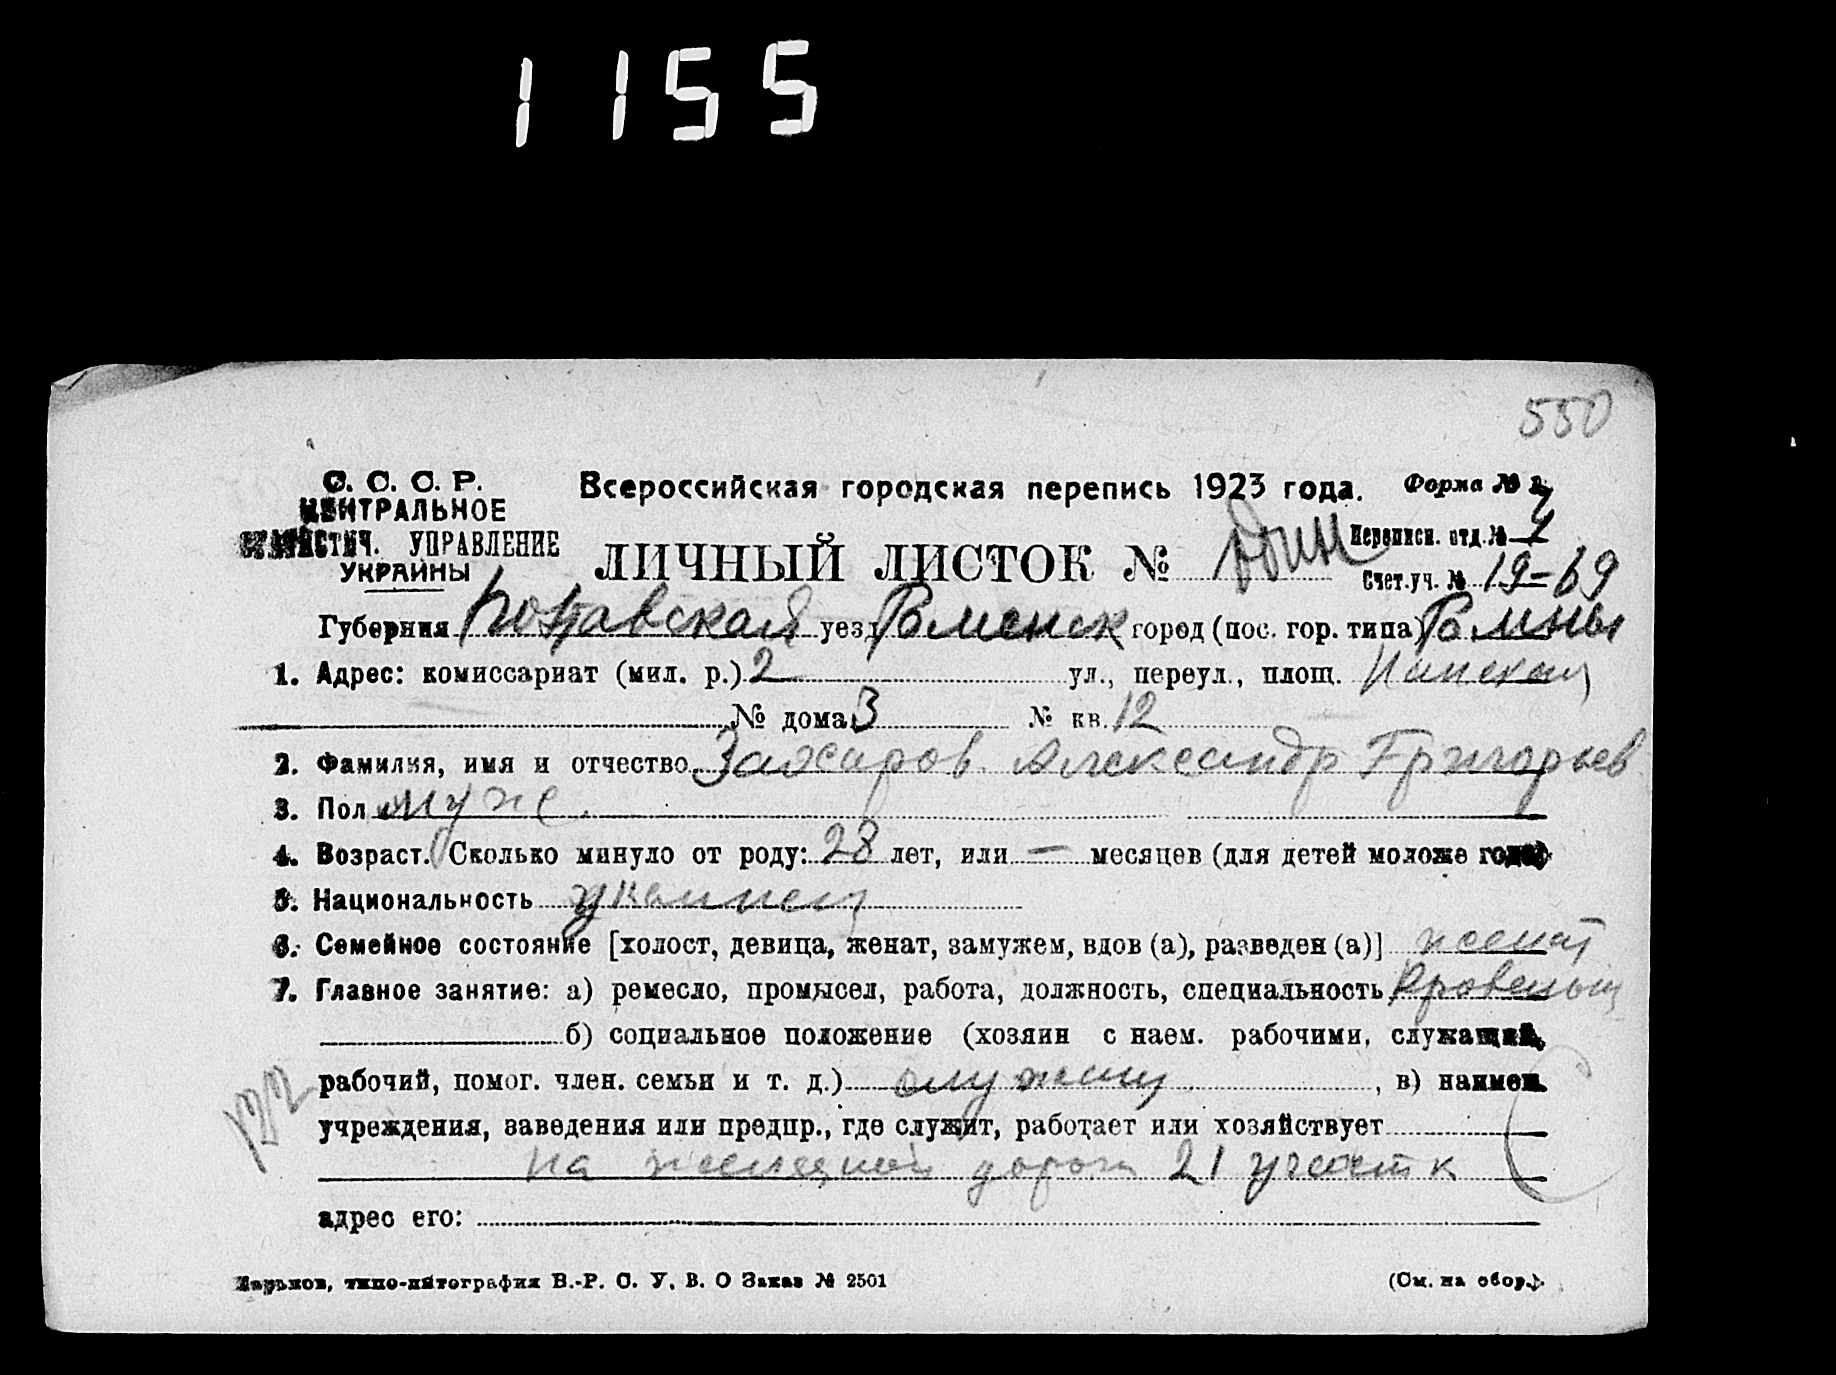 1155
550
С. С. С. Р.
ЦЕНТРАЛЬНОЕ
СТАТИСТИЧ. УПРАВЛЕНИЕ
УКРАИНЫ
Всероссийская городская перепись 1923 года.
Форма №
ЛИЧНЫЙ ЛИСТОК № один
Переписн. отд. №
Счет. уч. № 19-69
Губерния Полтавская уезд Роменск город (пос. гор. типа) Ромны
1. Адрес: комиссариат (мил. р.) 2 ул., переул., площ.
№ дома 3 № кв. 12
2. Фамилия, имя и отчество Захаров Александр Григорьев
3. Пол муж.
4. Возраст. Сколько минуло от роду: 28 лет, или — месяцев (для детей моложе года)
5. Национальность
6. Семейное состояние [холост, девица, женат, замужем, вдов (а), разведен (а)] женат
7. Главное занятие: а) ремесло, промысел, работа, должность, специальность Кровельщ
б) социальное положение (хозяин с наем. рабочими, служащий,
рабочий, помог. член. семьи и т. д.) служащ , в) наимен.
учреждения, заведения или предпр., где служит, работает или хозяйствует
на железной дороги 21 участк
адрес его:
Харьков, типо-литография В.-Р. С. У. В. О Заказ № 2501
(См. на обор.).